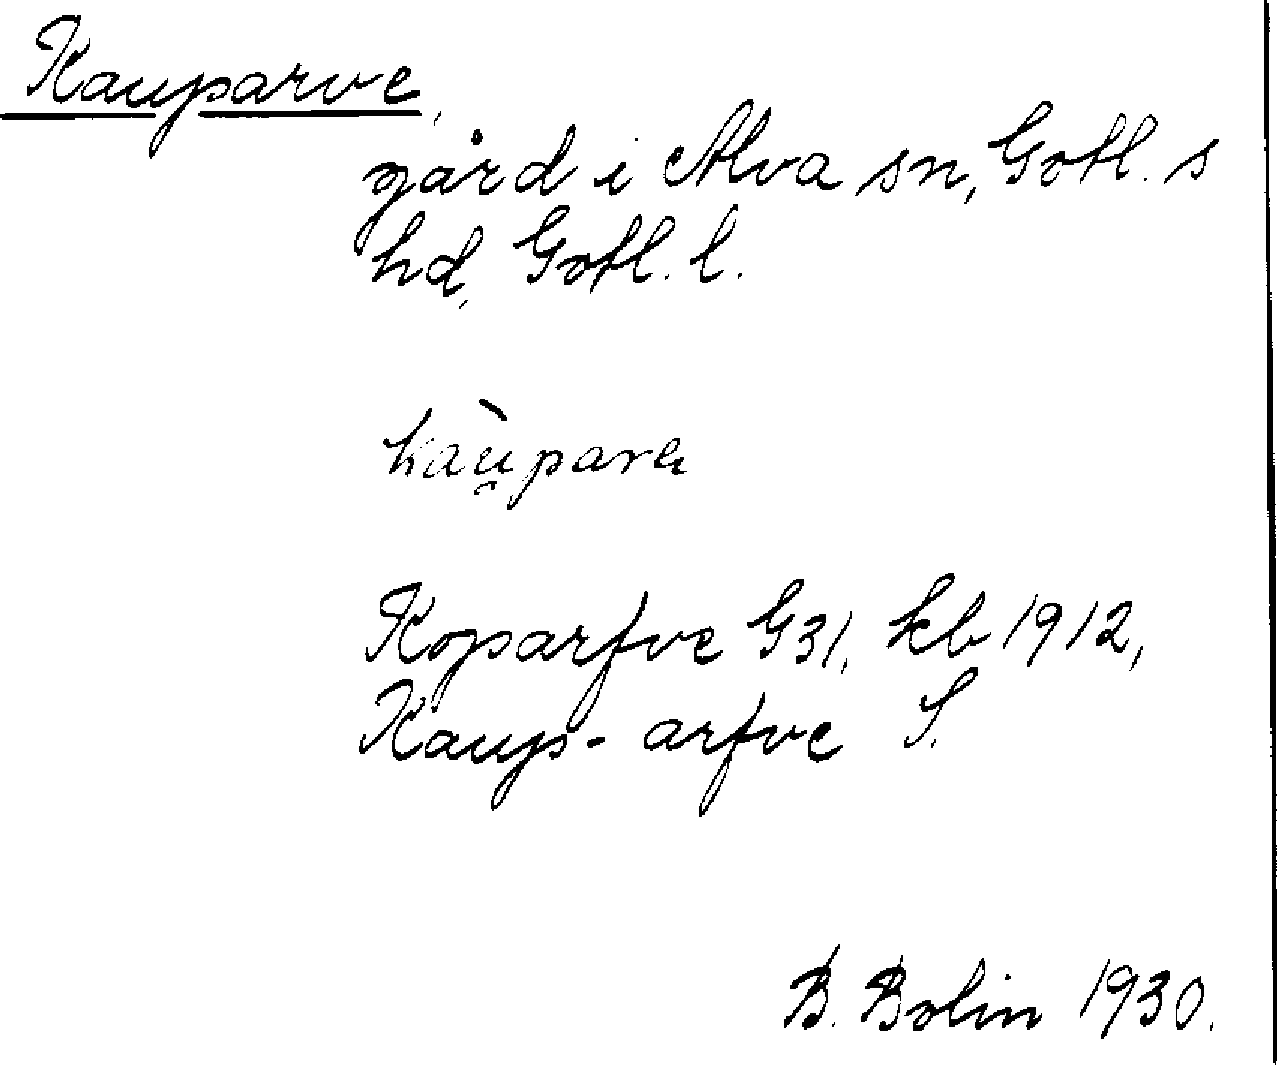 Kauparve,
gård i Alva sn, Gotl. s
hd, Gotl. l.
kaù̯para
Koparfve G31, kb 1912,
Kaup-arfve S.
B. Bolin 1930.